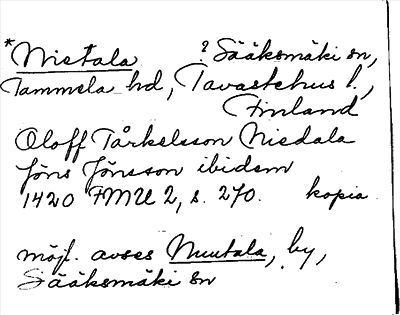 *Nistala ? Sääksmäki sn,
Tammela hd, Tavastehus l.,
Finland
Oloff Tårkelsson Nisdala
Jöns Jönsson ibidem
1420 FMU 2, s. 270. kopia
möjl. avses Nuutala, by,
Sääksmäki sn